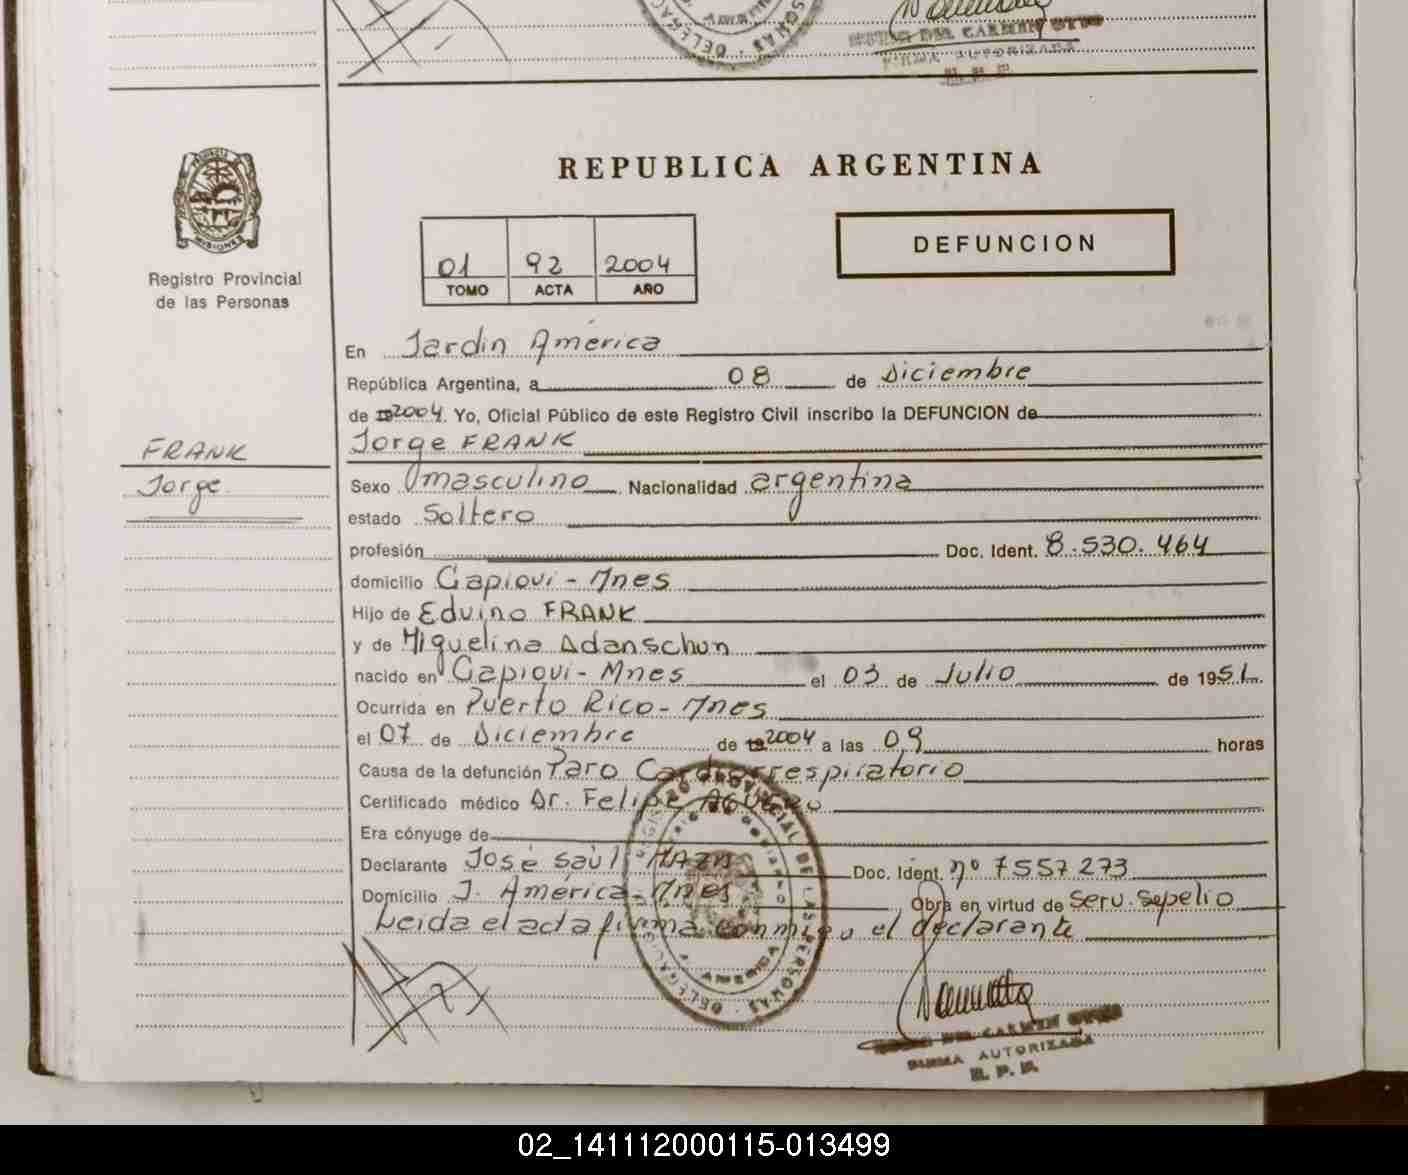 DEL CARMEN
REPUBLICA ARGENTINA
DEFUNCION
01 92 2004
TOMO ACTA AÑO
Registro Provincial
de las Personas
En Jardin América
República Argentina, a 08 de Diciembre
de 19 2004. Yo, Oficial Público de este Registro Civil inscribo la DEFUNCION de
Jorge FRANK
FRANK
Jorge
Sexo masculino Nacionalidad argentina
estado Soltero
profesión Doc. Ident. 8.530.464
domicilio Capiovi - Mnes
Hijo de Eduino FRANK
y de Miguelina Adanschun
nacido en Capiovi - Mnes el 03 de Julio de 1951
Ocurrida en Puerto Rico - Mnes
el 07 de Diciembre de 19 2004 a las 09 horas
Causa de la defunción Paro Cardiorrespiratorio
Certificado médico Dr. Felipe
Era cónyuge de
Declarante José Saúl Doc. Ident. nº 7557273
Domicilio J. América - Mnes Obra en virtud de serv. sepelio
Leida el acta firma conmigo el declarante
DEL CARMEN
FIRMA AUTORIZADA
R. P. P.
02_141112000115-013499